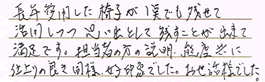 長年愛用した椅子が1つでも残せて
活用しつつ思い出として残すことが出来て
満足です。担当者の方の説明、態度共に
仕上りの良さ同様、好印象でした。お世話様でした。